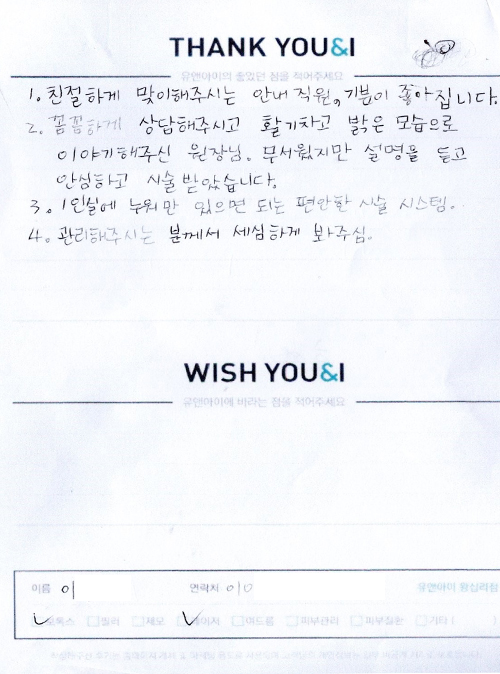 THANK YOU&I
유앤아이의 좋았던 점을 적어주세요
1. 친절하게 맞이해주시는 안내 직원, 기분이 좋아집니다.
2. 꼼꼼하게 상담해주시고 활기차고 밝은 모습으로
이야기해주신 원장님. 무서웠지만 설명을 듣고
안심하고 시술 받았습니다.
3. 1인실에 누워만 있으면 되는 편안한 시술 시스템.
4. 관리해주시는 분께서 세심하게 봐주심.
WISH YOU&I
유앤아이에 바라는 점을 적어주세요
이름 이 연락처 010 유앤아이 왕십리점
보톡스 필러 제모 레이저 여드름 피부관리 피부질환 기타 ( )